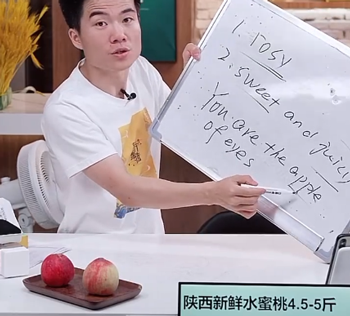 1. rosy
2. sweet and juicy
You are the apple
of eyes
陕西新鲜水蜜桃4.5-5斤